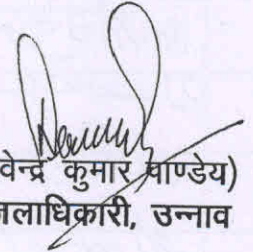 वेन्द्र कुमार पाण्डेय)
जिलाधिकारी, उन्नाव